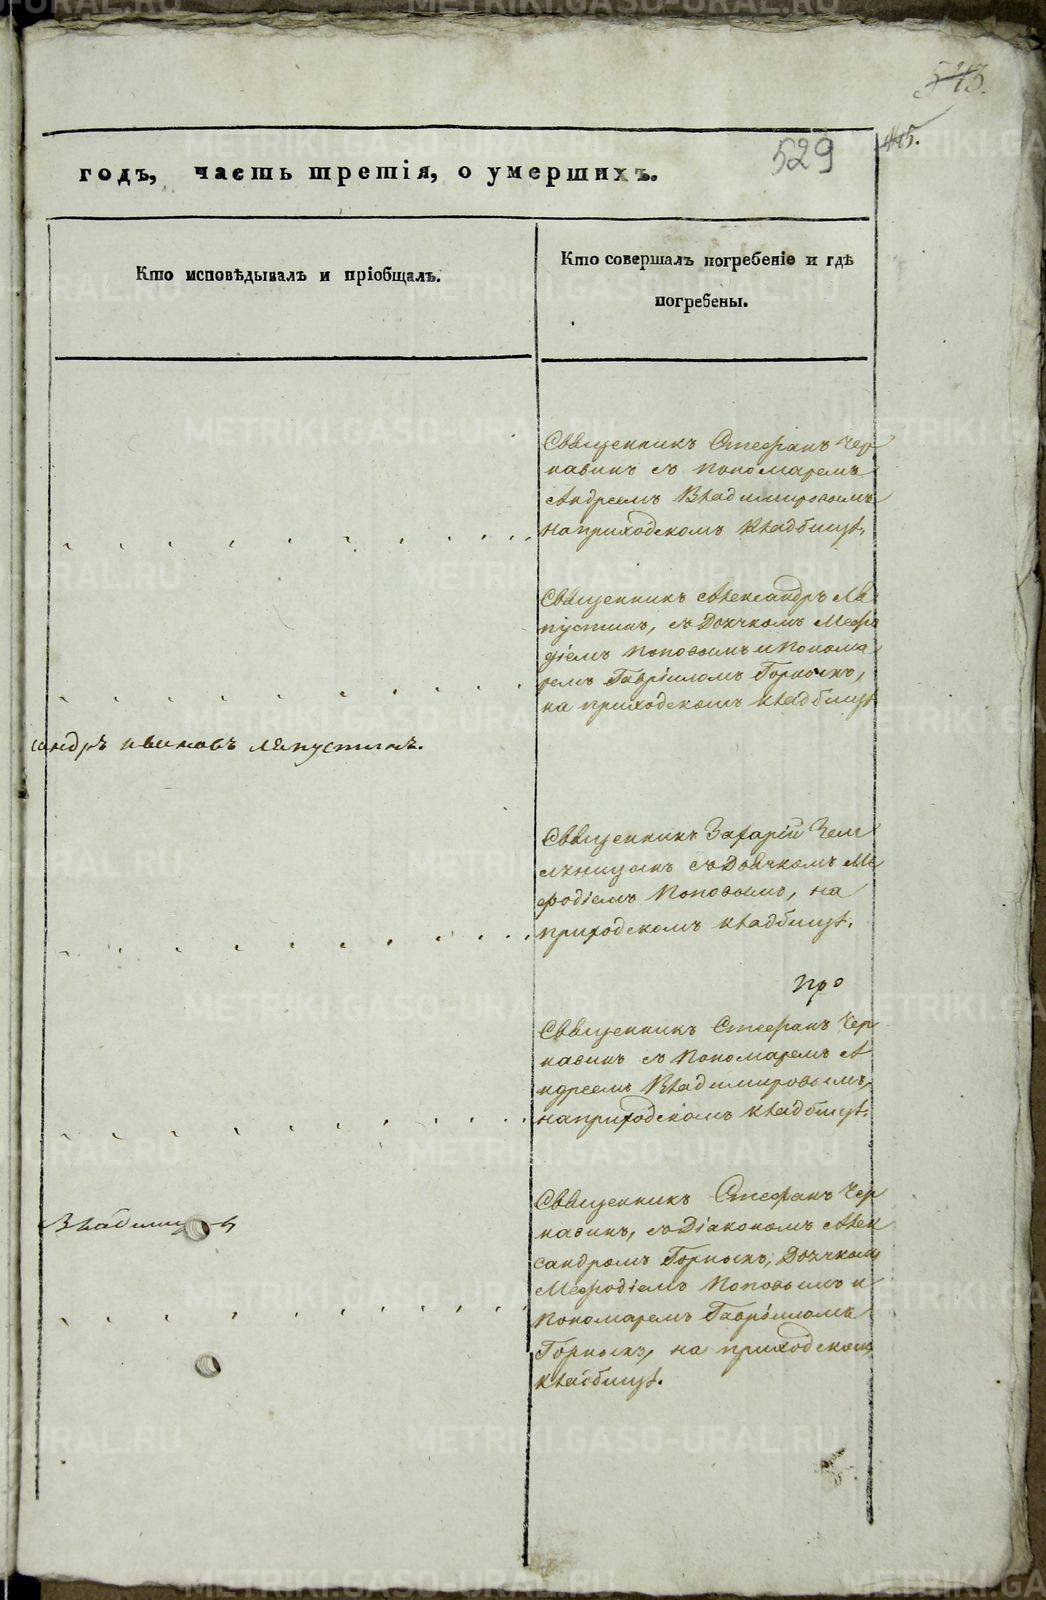 543.
445.
529
годъ, часть третія, о умершихъ.
Кто исповѣдывалъ и пріобщалъ.
Кто совершалъ погребеніе и гдѣ
погребены.
Священникъ Стефанъ Чер
навинъ съ пономаремъ
Андреемъ Владимировымъ
на приходскомъ кладбищѣ.
Священникъ Александръ Ла
пустинъ, съ Дьячкомъ Мефо
діемъ Поповымъ и Понома
ремъ Гавріиломъ Горныхъ,
на приходскомъ кладбищѣ
сандръ Ивановъ Лапустинъ.
Священникъ Захарій Земл
яницынъ съ Дьячкомъ Ме
фодіемъ Поповымъ, на
приходскомъ кладбищѣ.
Про
Священникъ Стефанъ Чер
навинъ съ Пономаремъ А
ндреемъ Владимировымъ,
на приходскомъ кладбищѣ.
Священникъ Стефанъ Чер
навинъ, съ Діакономъ Алек
сандромъ Горныхъ, Дьячкомъ
Мефодіемъ Поповымъ и
Пономаремъ Гавріиломъ
Горныхъ, на приходскомъ
кладбищѣ.
METRIKI.GASO-URAL.RU